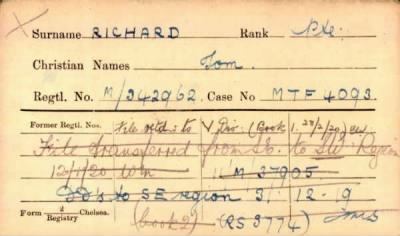 Surname RICHARD Rank Pte.
Christian Names Tom.
Regtl. No. M/342962. Case No MTF 4093.
Former Regtl. Nos. File retd: to V Div: (Book 1. 28/2/20)
File transferred from S.b. to SW Region
12/1/20 M 37905
DD's to SE region 31.12.19
Form 2 Registry Chelsea. (book 2) (RS 3774)